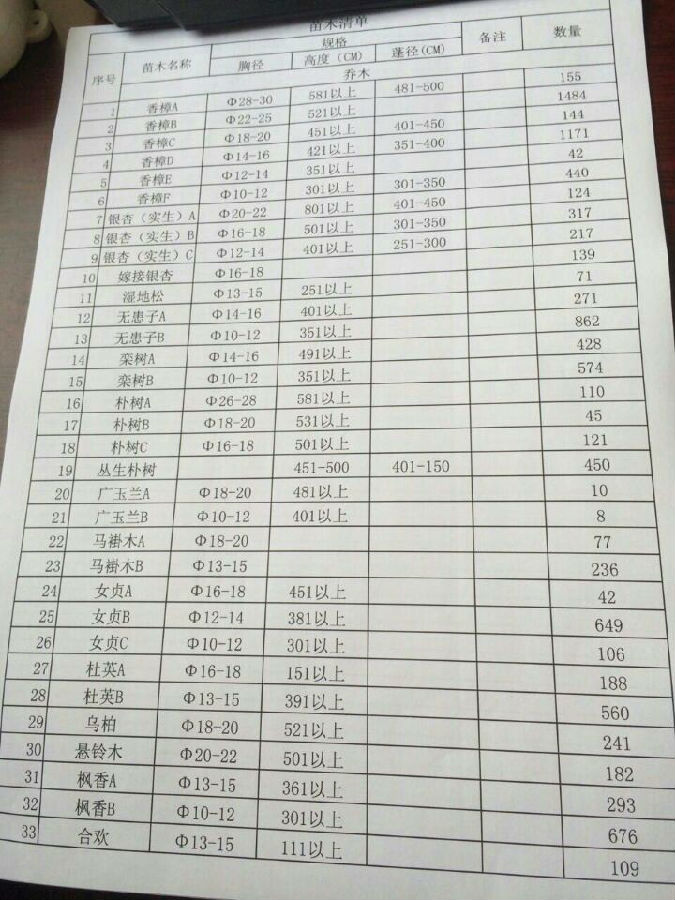 苗木清单
序号 苗木名称 规格 备注 数量
胸径 高度（CM） 蓬径(CM)
乔木
1 香樟A Φ28-30 581以上 481-500 155
2 香樟B Φ22-25 521以上 1484
3 香樟C Φ18-20 451以上 401-450 144
4 香樟D Φ14-16 421以上 351-400 1171
5 香樟E Φ12-14 351以上 42
6 香樟F Φ10-12 301以上 301-350 440
7 银杏（实生）A Φ20-22 801以上 401-450 124
8 银杏（实生）B Φ16-18 501以上 301-350 317
9 银杏（实生）C Φ12-14 401以上 251-300 217
10 嫁接银杏 Φ16-18 139
11 湿地松 Φ13-15 251以上 71
12 无患子A Φ14-16 401以上 271
13 无患子B Φ10-12 351以上 862
14 栾树A Φ14-16 491以上 428
15 栾树B Φ10-12 351以上 574
16 朴树A Φ26-28 581以上 110
17 朴树B Φ18-20 531以上 45
18 朴树C Φ16-18 501以上 121
19 丛生朴树 451-500 401-150 450
20 广玉兰A Φ18-20 481以上 10
21 广玉兰B Φ10-12 401以上 8
22 马褂木A Φ18-20 77
23 马褂木B Φ13-15 236
24 女贞A Φ16-18 451以上 42
25 女贞B Φ12-14 381以上 649
26 女贞C Φ10-12 301以上 106
27 杜英A Φ16-18 151以上 188
28 杜英B Φ13-15 391以上 560
29 乌桕 Φ18-20 521以上 241
30 悬铃木 Φ20-22 501以上 182
31 枫香A Φ13-15 361以上 293
32 枫香B Φ10-12 301以上 676
33 合欢 Φ13-15 111以上 109